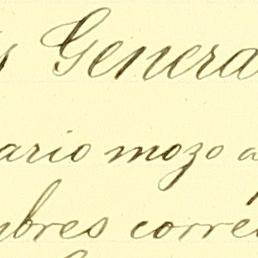 s General
ario mozo a
bres corre